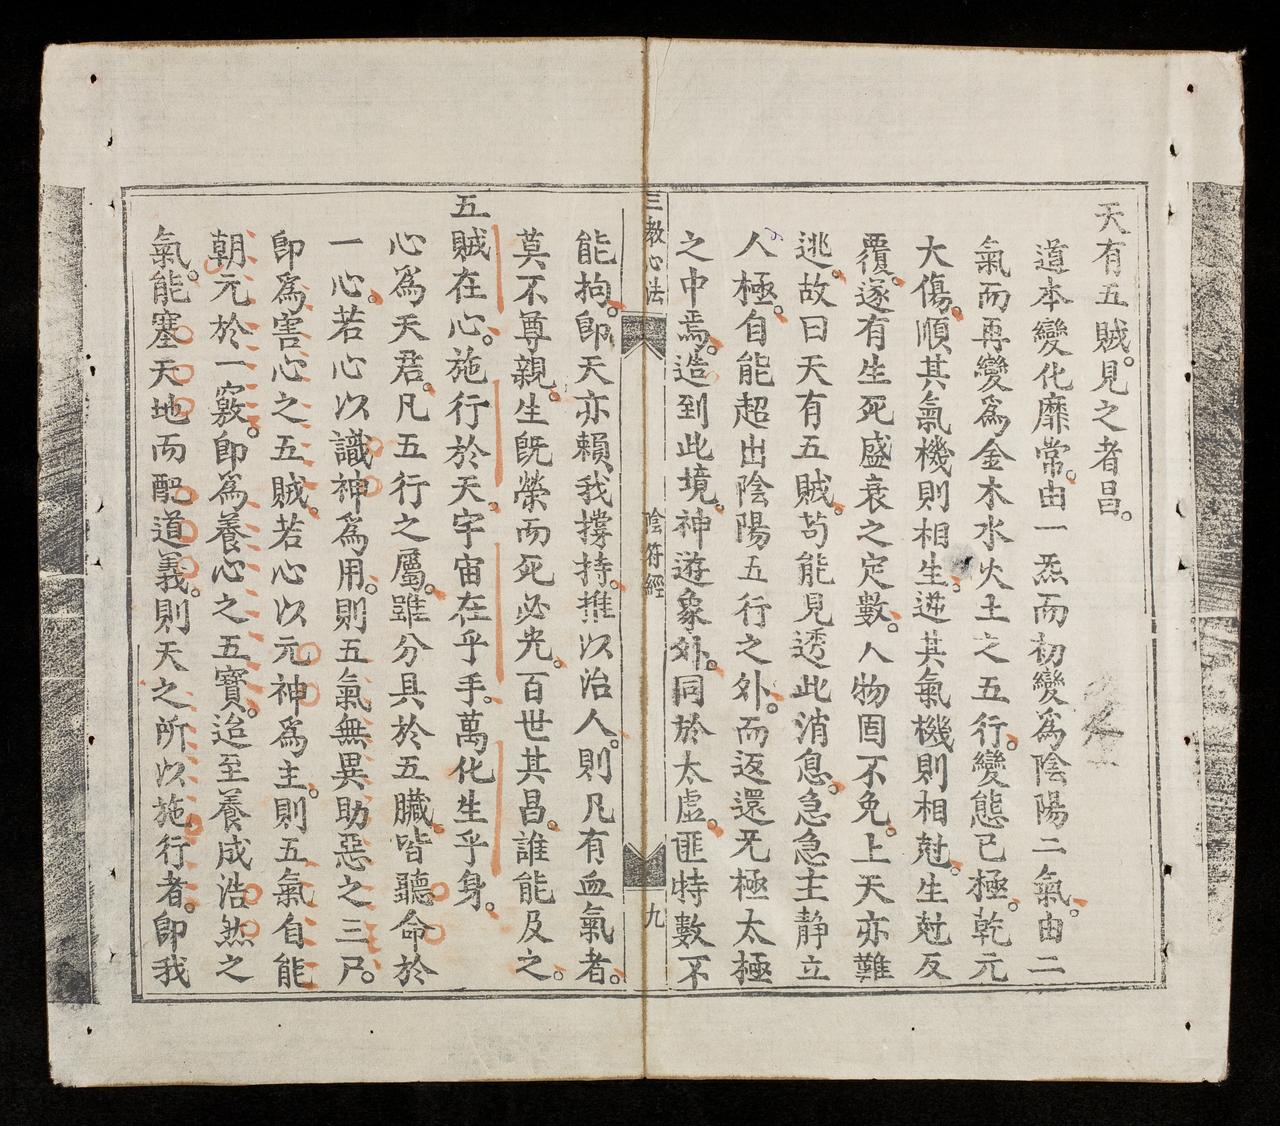 天有五賊。見之者昌。
道本變化靡常。由一炁而初變爲陰陽二氣。由二
氣而再變爲金木水火土之五行。變態已極。乾元
大傷。順其氣機則相生。逆其氣機則相尅。生尅反
覆。遂有生死盛衰之定數。人物固不免。上天亦難
逃。故曰天有五賊。苟能見透此消息。急急主靜立
人極。自能超出陰陽五行之外。而返還无極太極
之中焉。造到此境。神遊象外。同於太虛。匪特數不
三教心法 陰符經 九
能拘。卽天亦賴我撐持。推以治人。則凡有血氣者。
莫不尊親。生旣榮而死必光。百世其昌。誰能及之。
五賊在心。施行於天。宇宙在乎手。萬化生乎身。
心爲天君。凡五行之屬。雖分具於五臟。皆聽命於
一心。若心以識神爲用。則五氣無異助惡之三尸。
卽爲害心之五賊。若心以元神爲主。則五氣自能
朝元於一竅。卽爲養心之五寶。迨至養成浩然之
氣。能塞天地而配道義。則天之所以施行者。卽我